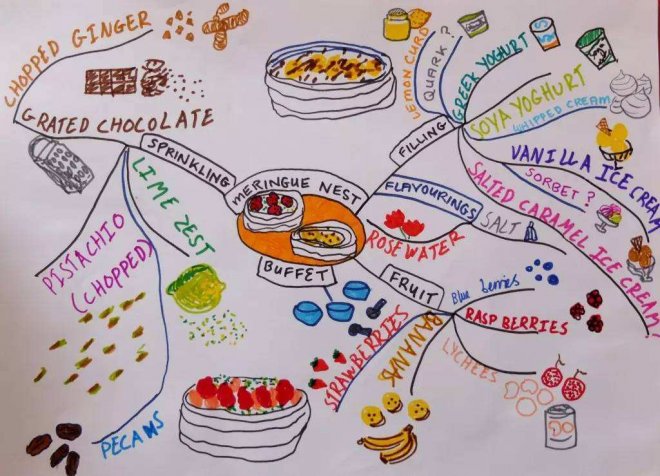 CHOPPED GINGER
GRATED CHOCOLATE
SPRINKLING
LIME ZEST
PISTACHIO
(CHOPPED)
PECANS
MERINGUE NEST
BUFFET
FILLING
LEMON CURD
QUARK?
GREEK YOGHURT
SOYA YOGHURT
WHIPPED CREAM
VANILLA ICE CREAM
SORBET?
SALTED CARAMEL ICE CREAM!
FLAVOURINGS
SALT
ROSEWATER
FRUIT
Blueberries
RASPBERRIES
LYCHEES
BANANAS
STRAWBERRIES